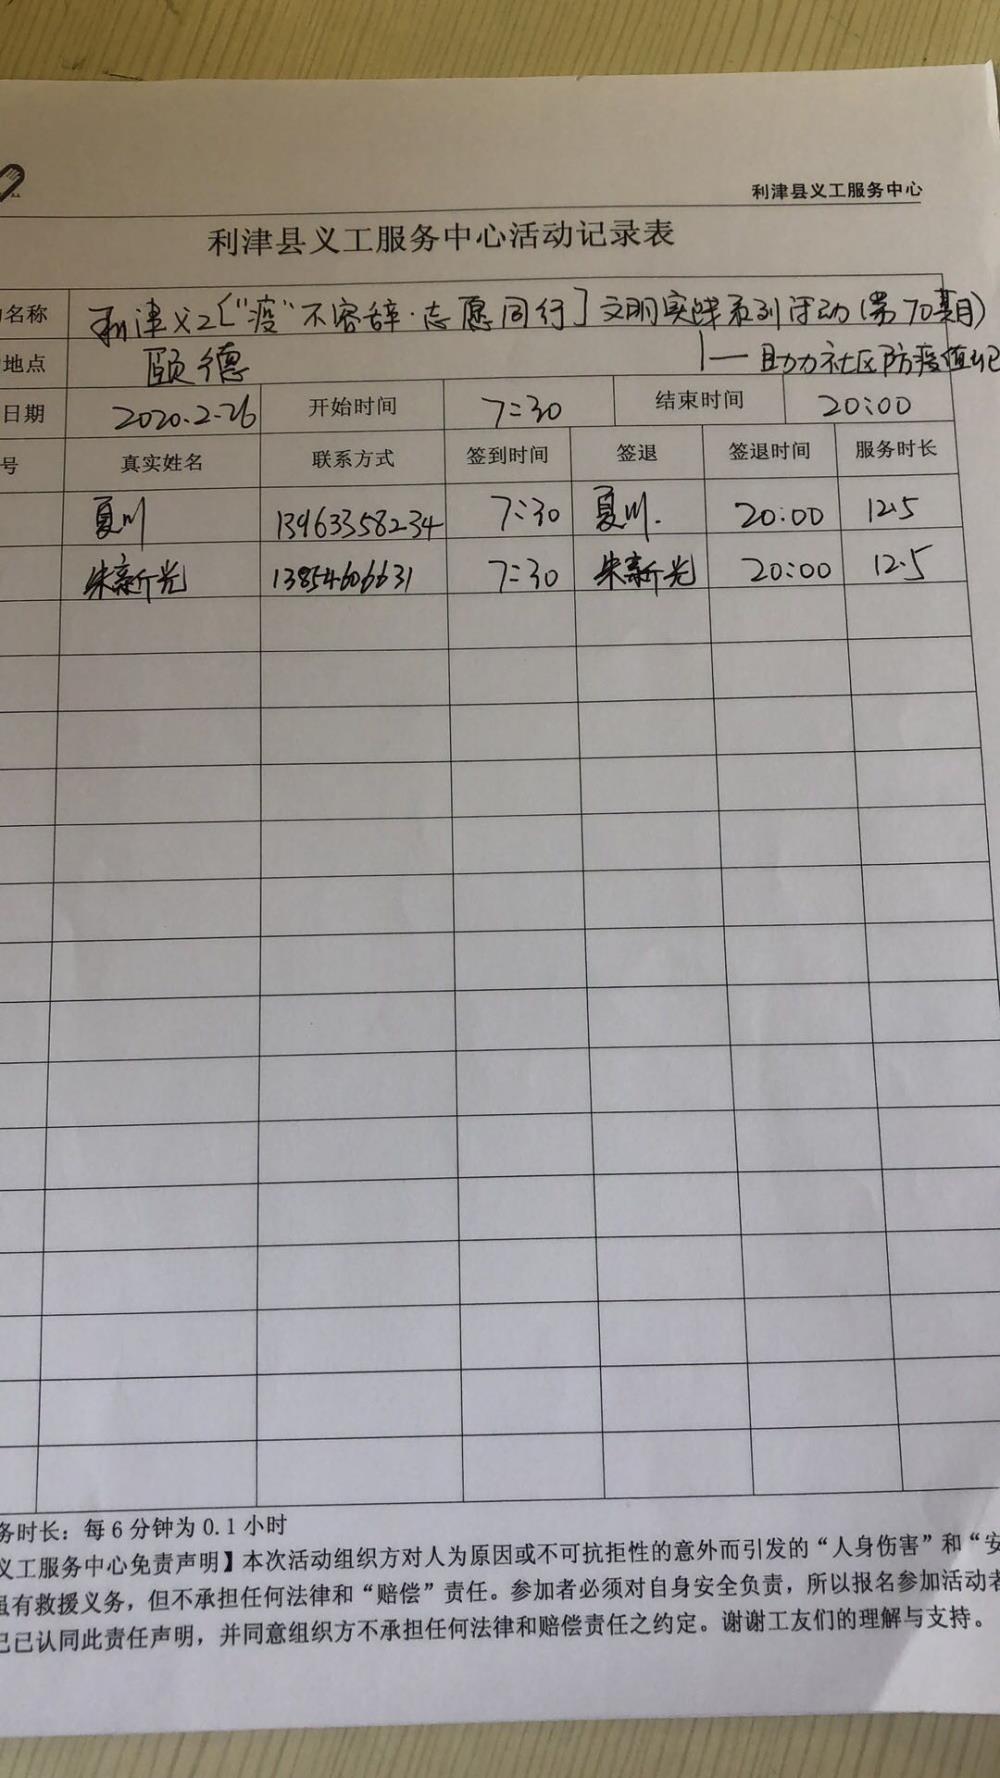 利津县义工服务中心
利津县义工服务中心活动记录表
名称 利津义工[“疫”不容辞·志愿同行]文明实践系列活动(第70期)
地点 颐德 助力社区防疫值
日期 2020.2.26 开始时间 7:30 结束时间 20:00
号 真实姓名 联系方式 签到时间 签退 签退时间 服务时长
夏川 13963358234 7:30 夏川. 20:00 12.5
朱新光 13854606631 7:30 朱新光 20:00 12.5
务时长：每6分钟为0.1小时
义工服务中心免责声明】本次活动组织方对人为原因或不可抗拒性的意外而引发的“人身伤害”和“安
虽有救援义务，但不承担任何法律和“赔偿”责任。参加者必须对自身安全负责，所以报名参加活动者
已认同此责任声明，并同意组织方不承担任何法律和赔偿责任之约定。谢谢工友们的理解与支持。